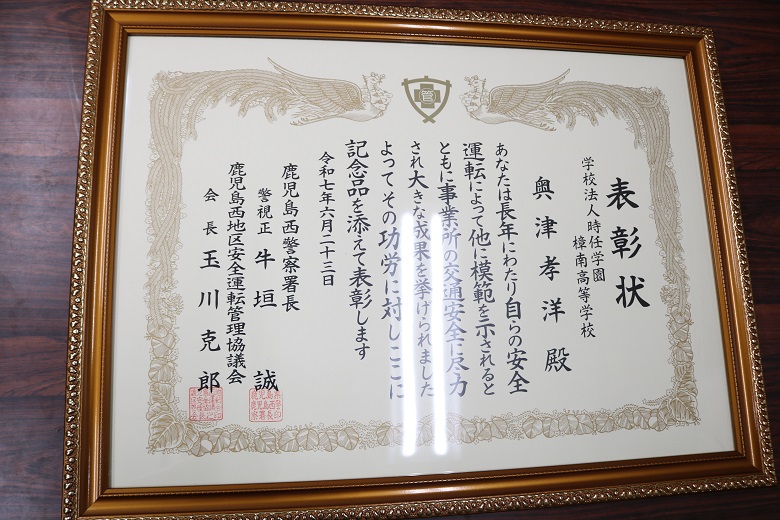 表彰状
学校法人時任学園
樟南高等学校
奥津孝洋殿
あなたは長年にわたり自らの安全
運転によって他に模範を示されると
ともに事業所の交通安全に尽力
され大きな成果を挙げられました
よってその功労に対しここに
記念品を添えて表彰します
令和七年六月二十三日
鹿児島西警察署長
警視正 牛垣誠
鹿児島西地区安全運転管理協議会
会長 玉川克郎